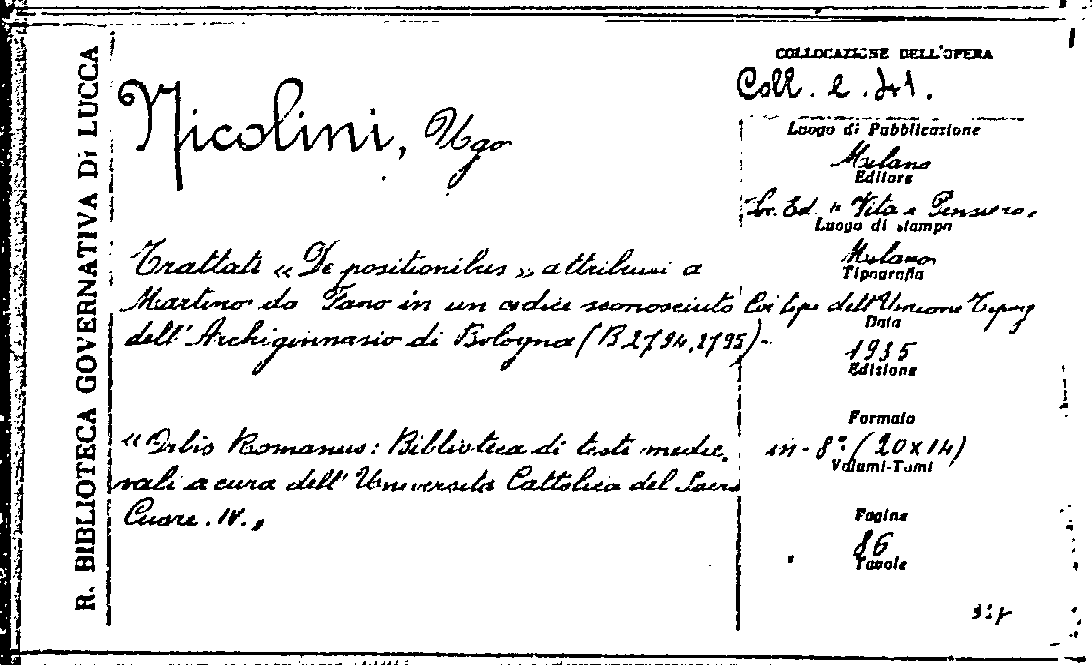 R. BIBLIOTECA GOVERNATIVA DI LUCCA
Nicolini, Ugo
Trattati « De positionibus » attribuiti a
Martino da Fano in un codice sconosciuto
dell'Archiginnasio di Bologna (B 2794, 2795)-
« Orbis Romanus: Biblioteca di testi medie-
vali a cura dell'Università Cattolica del Sacro
Cuore. IV. »
COLLOCAZIONE DELL'OPERA
Coll. e.
Luogo di Pubblicazione
Milano
Editore
Ed. " Vita e Pensiero "
Luogo di stampa
Milano
Tipografia
tipi dell'Unione Tipog
Data
1935
Edizione
Formato
in-8° (20x14)
Volumi-Tomi
Pagine
86
Tavole